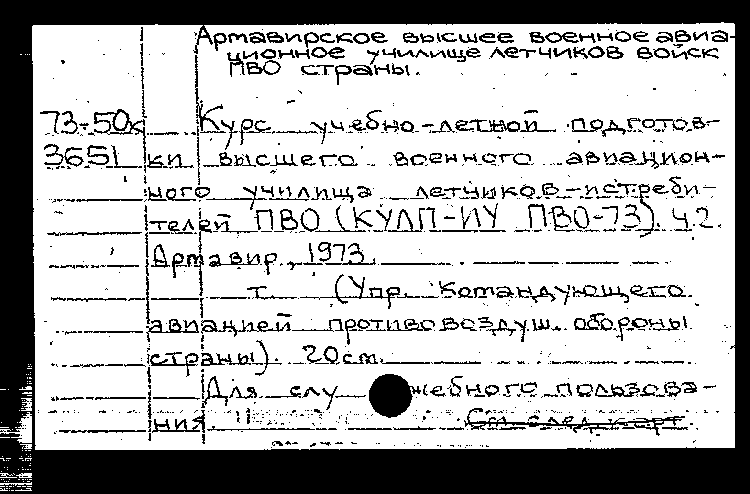 Армавирское высшее военное авиа-
ционное училище летчиков войск
ПВО страны.
73-50к Курс учебно-летной подготов-
3651 ки высшего военного авиацион-
ного училища летчиков-истреби-
телей ПВО (КУЛП-ИУ ПВО-73). ч.2.
Армавир, 1973.
т. (Упр. Командующего
авиацией противовоздуш. обороны
страны). 20см.
Для служебного пользова-
ния. См след карт.